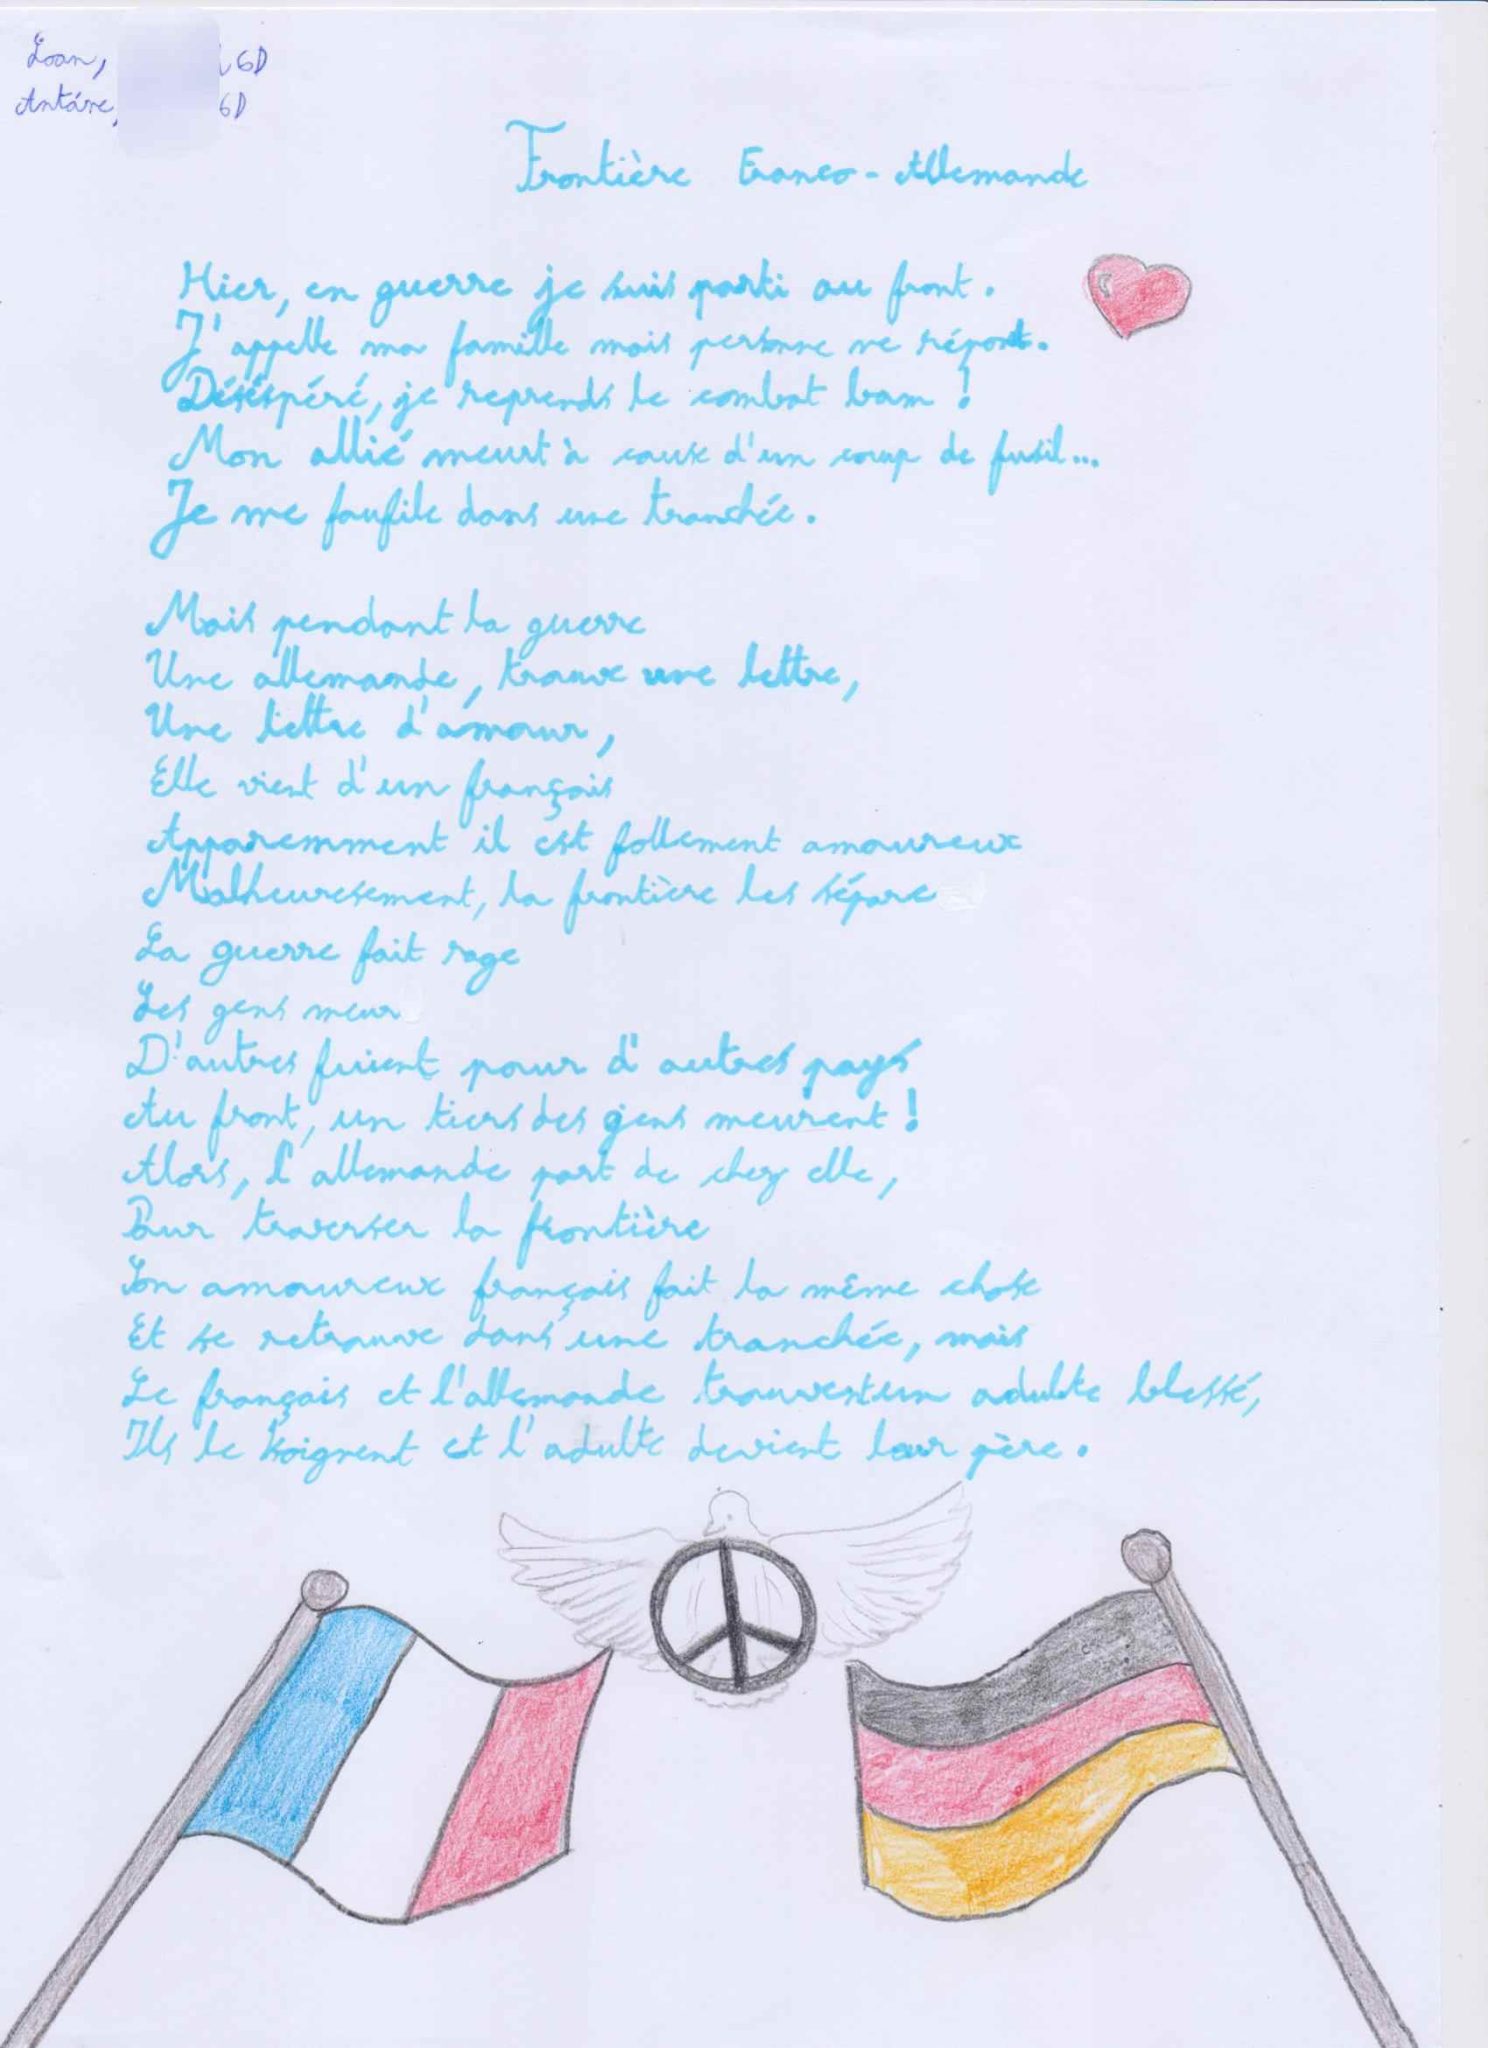 Loan, 6D
Antáre, 6D
Frontière Franco-Allemande
Hier, en guerre je suis parti au front.
J'appelle ma famille mais personne ne répont.
Désespéré, je reprends le combat bam !
Mon allié meurt à cause d'un coup de fusil...
Je me faufile dans une tranchée.
Mais pendant la guerre
Une allemande, trouve une lettre,
Une lettre d'amour,
Elle vient d'un français
Apparemment il est follement amoureux
Malheuresement, la frontière les sépare
La guerre fait rage
Les gens meur
D'autres fuient pour d'autres pays
Au front, un tiers des gens meurent !
Alors, l'allemande part de chez elle,
Pour traverser la frontière
Son amoureux français fait la même chose
Et se retrouve dans une tranchée, mais
Le français et l'allemande trouvent un adulte blessé,
Ils le soignent et l'adulte devient leur père.